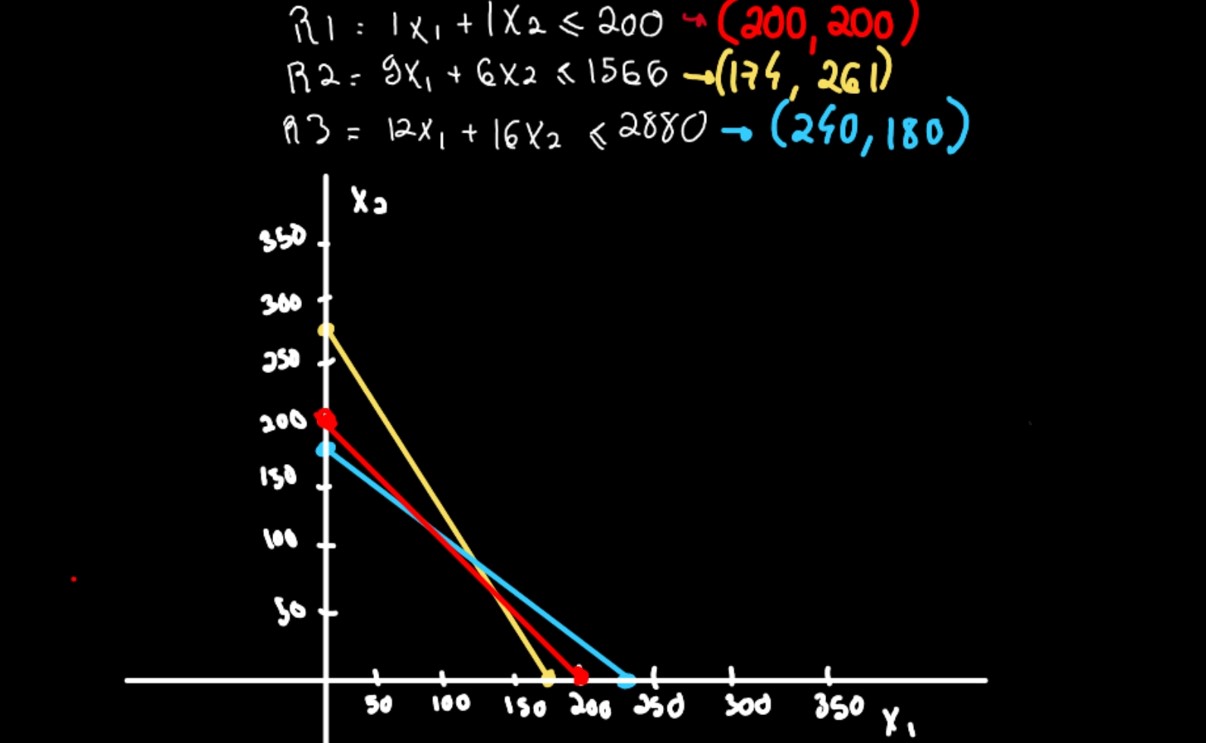 R1: 1x₁ + 1x₂ ≤ 200 → (200, 200)
R2= 9x₁ + 6x₂ ≤ 1566 → (174, 261)
R3= 12x₁ + 16x₂ ≤ 2880 → (240, 180)
x₂
350
300
250
200
150
100
50
50 100 150 200 250 300 350 x₁